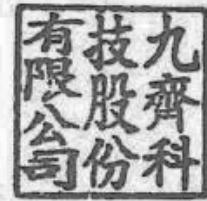 九齊科
技股份
有限公司